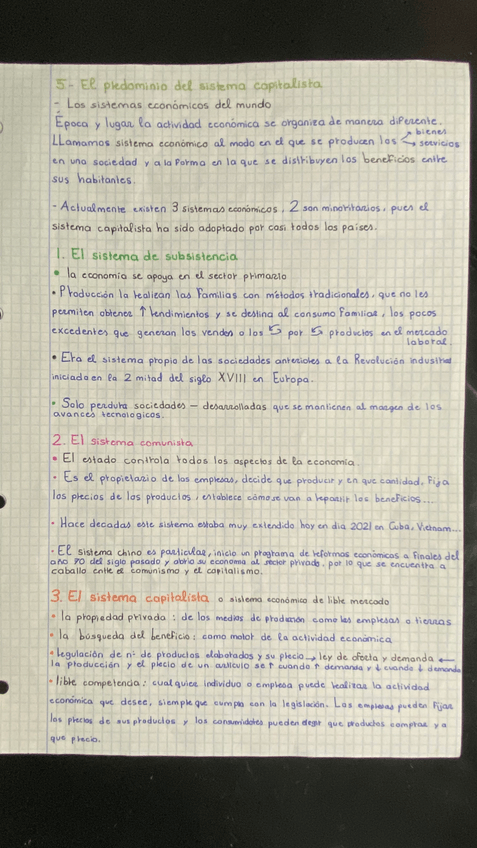 5- El predominio del sistema capitalista
- Los sistemas económicos del mundo
Época y lugar la actividad económica se organiza de manera diferente.
LLamamos sistema económico al modo en el que se producen los bienes servicios
en una sociedad y a la forma en la que se distribuyen los beneficios entre
sus habitantes.
- Actualmente existen 3 sistemas económicos, 2 son minoritarios, pues el
sistema capitalista ha sido adoptado por casi todos los paises.
1. El sistema de subsistencia
• la economía se apoya en el sector primario
• Producción la realizan las familias con métodos tradicionales, que no les
permiten obtener ↑ rendimientos y se destina al consumo familiar, los pocos
excedentes que generan los venden o los ⇆ por ⇆ productos en el mercado
laboral.
• Era el sistema propio de las sociedades anteriores a la Revolución industrial
iniciado en la 2 mitad del siglo XVIII en Europa.
• Solo perdura sociedades - desarrolladas que se mantienen al margen de los
avances tecnologicos.
2. El sistema comunista
• El estado controla todos los aspectos de la economía
• Es el propietario de las empresas, decide que producir y en que cantidad, fija
los precios de los productos, establece cómo se van a repartir los beneficios...
• Hace decadas este sistema estaba muy extendido hoy en dia 2021 en Cuba, Vietnam...
• El sistema chino es particular, inicio un programa de reformas económicos a finales del
año 70 del siglo pasado y abrio su economia al sector privado, por lo que se encuentra a
caballo entre el comunismo y el capitalismo.
3. El sistema capitalista o sistema económico de libre mercado
• la propiedad privada : de los medios de producción como las empresas o tierras
• la búsqueda del beneficio : como motor de la actividad económica
• regulación de nº de productos elaborados y su precio → ley de oferta y demanda ←
la producción y el precio de un articulo se ↑ cuando ↑ demanda y ↓ cuando ↓ demanda
• libre competencia : cualquier individuo o empresa puede realizar la actividad
económica que desee, siempre que cumpla con la legislación. Los empresas pueden fijar
los precios de sus productos y los consumidores pueden elegir que productos comprar y a
que precio.